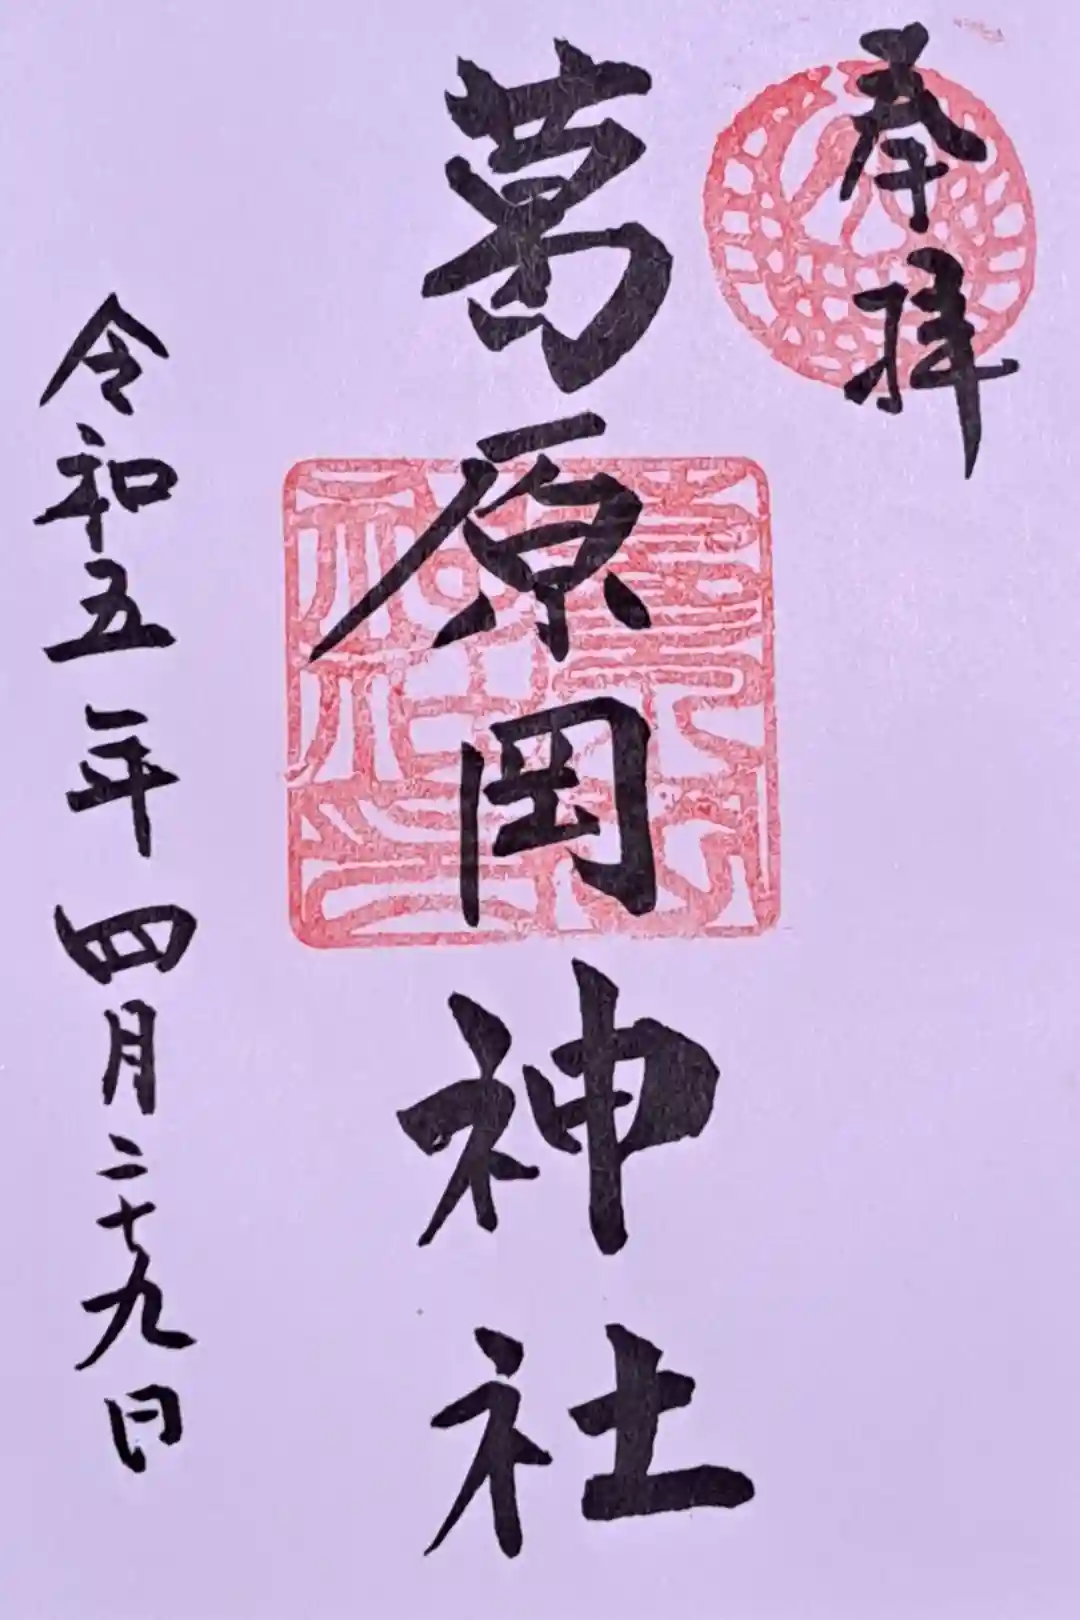 奉拝
葛原岡神社
令和五年四月二十九日